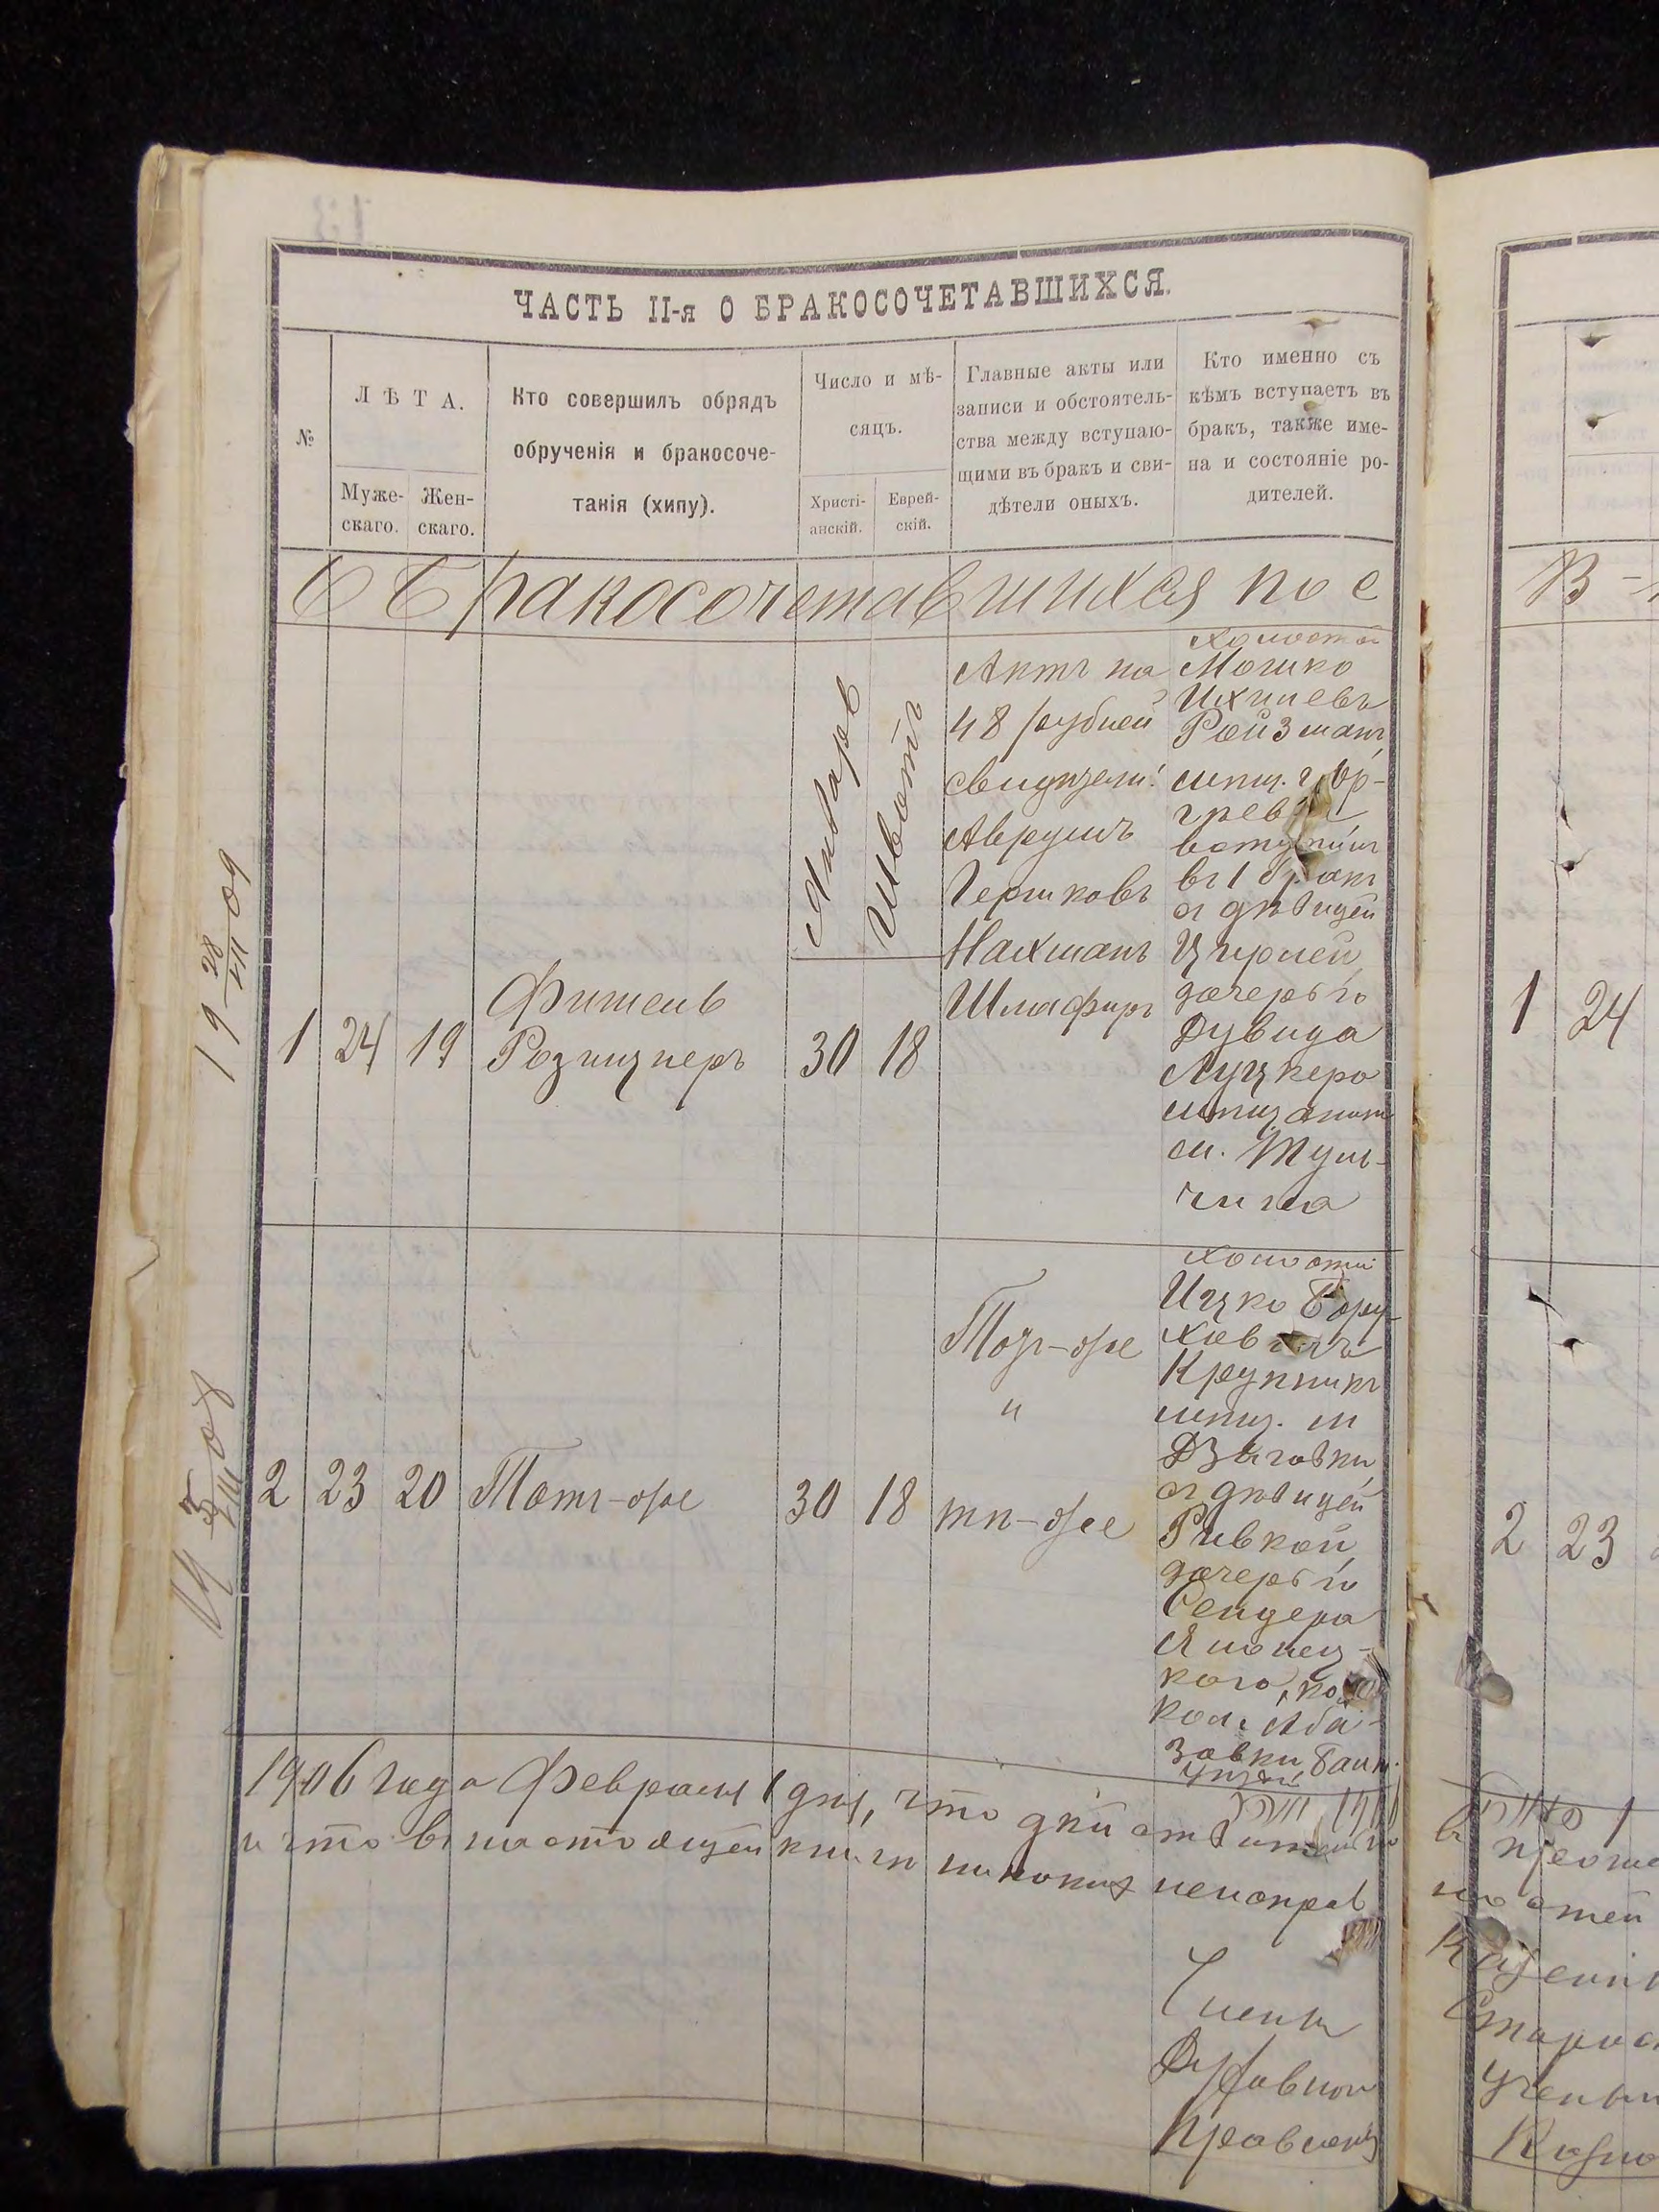 ЧАСТЬ II-я О БРАКОСОЧЕТАВШИХСЯ.
№
ЛѢТА.
Муже-
скаго.
Жен-
скаго.
Кто совершилъ обрядъ
обрученія и бракосоче-
танія (хипу).
Число и мѣ-
сяцъ.
Христі-
анскій.
Еврей-
скій.
Главные акты или
записи и обстоятель-
ства между вступаю-
щими въ бракъ и сви-
дѣтели оныхъ.
Кто именно съ
кѣмъ вступаетъ въ
бракъ, также име-
на и состояніе ро-
дителей.
О Бракосочетавшихся по е
В
19 28/VII 09
1
24
19
Фишель
Розницнеръ
Январь
Шевотъ
30
18
Актъ на
48 рублей
свидѣтели:
Аврумъ
Гершковъ
Нахманъ
Шлафиръ
Холостой
Мошко
Ихилевъ
Ройзманъ,
мѣщ.
вступилъ
въ 1 бракъ
съ дѣвицей
Цирлей,
дочерью
Дувида
Луцкера
м. Туль-
чина
1
24
2
23
20
Тотъ-же
30
18
Тотъ-же
"
тѣ-же
Холостой
Ицко Бору-
ховичъ
Крупникъ
мѣщ. м
Дзыговки,
съ дѣвицей
Ривкой,
дочерью
Сендера
Яполец-
кого,
Завки Балт.
2
23
1906 года Февраля 1 дня, что дѣйствительно
и что въ настоящей книгѣ никакихъ неиправ
Члены
Духовном
Правлен
Казенн
Старос
Ученый